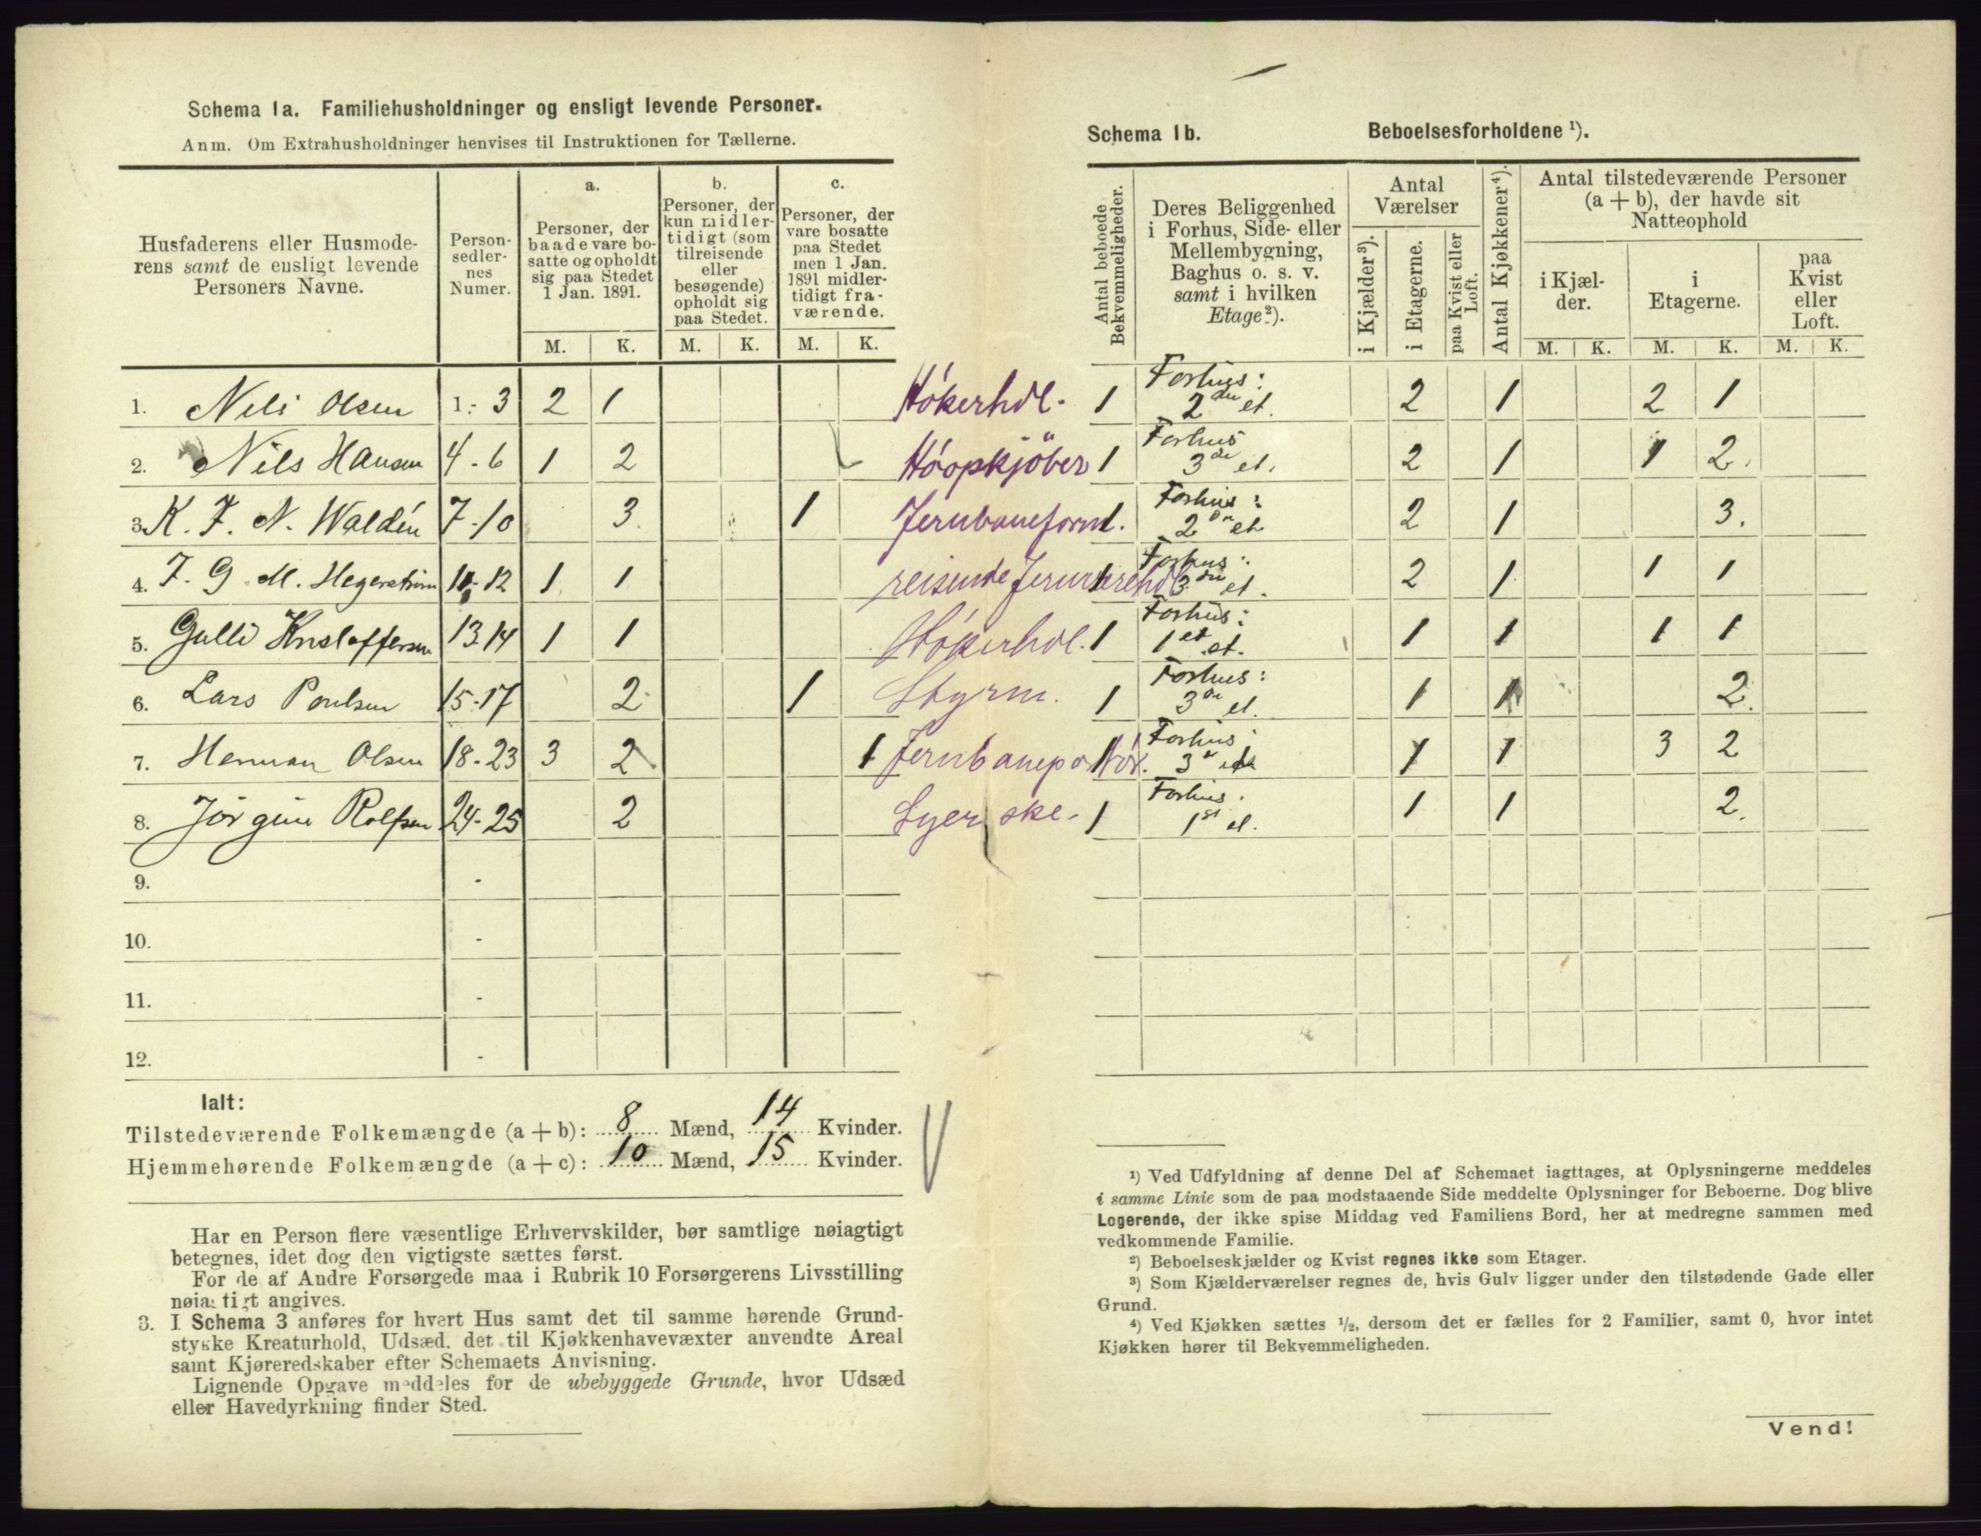 Schema 1a. Familiehusholdninger og ensligt levende Personer.
Anm. Om Extrahusholdninger henvises til Instruktionen for Tællerne.
Husfaderens eller Husmoderens samt de ensligt levende Personers Navne.
Personsedlernes Numer.
a.
Personer, der baade vare bosatte og opholdt sig paa Stedet 1 Jan. 1891.
b.
Personer, der kun midlertidigt (som tilreisende eller besøgende) opholdt sig paa Stedet.
c.
Personer, der vare bosatte paa Stedet men 1 Jan. 1891 midlertidigt fraværende.
M. K. M. K. M. K.
1. Nils Olsen 1-3 2 1 Høkerhdl.
2. Nils Hansen 4-6 1 2
3. K. F. N. Waldén 7-10 3 1
4. F. G. M. Hegerstrøm 11-12 1 1 reisende
5. Gulli Kristoffersen 13 14 1 1 Høkerhdl.
6. Lars Poulsen 15-17 2 1 Styrm.
7. Herman Olsen 18-23 3 2 1
8. Jørgine Rolfsen 24-25 2 Syerske
9. -
10. -
11. -
12. -
Ialt:
Tilstedeværende Folkemængde (a + b): 8 Mænd, 14 Kvinder.
Hjemmehørende Folkemængde (a + c): 10 Mænd, 15 Kvinder.
Har en Person flere væsentlige Erhvervskilder, bør samtlige nøiagtigt
betegnes, idet dog den vigtigste sættes først.
For de af Andre Forsørgede maa i Rubrik 10 Forsørgerens Livsstilling
nøiagtigt angives.
3. I Schema 3 anføres for hvert Hus samt det til samme hørende Grund-
stykke Kreaturhold, Udsæd, det til Kjøkkenhavevæxter anvendte Areal
samt Kjøreredskaber efter Schemaets Anvisning.
Lignende Opgave meddeles for de ubebyggede Grunde, hvor Udsæd
eller Havedyrkning finder Sted.
Schema 1b. Beboelsesforholdene ¹).
Antal beboede Bekvemmeligheder.
Deres Beliggenhed i Forhus, Side- eller Mellembygning, Baghus o. s. v. samt i hvilken Etage²).
Antal Værelser
i Kjælder³).
i Etagerne.
paa Kvist eller Loft.
Antal Kjøkkener⁴).
Antal tilstedeværende Personer (a + b), der havde sit Natteophold
i Kjælder.
i Etagerne.
paa Kvist eller Loft.
M. K. M. K. M. K.
1 Forhus: 2den et. 2 1 2 1
1 Forhus 3de et. 2 1 1 2
1 Forhus: 2den et 2 1 3
1 Forhus: 3de et. 2 1 1 1
1 Forhus: 1st et. 1 1 1 1
1 Forhus: 3de et. 1 1 2
1 Forhus 3de et 1 1 3 2
1 Forhus. 1st et. 1 1 2
¹) Ved Udfyldning af denne Del af Schemaet iagttages, at Oplysningerne meddeles
i samme Linie som de paa modstaaende Side meddelte Oplysninger for Beboerne. Dog blive
Logerende, der ikke spise Middag ved Familiens Bord, her at medregne sammen med
vedkommende Familie.
²) Beboelseskjælder og Kvist regnes ikke som Etager.
³) Som Kjælderværelser regnes de, hvis Gulv ligger under den tilstødende Gade eller
Grund.
⁴) Ved Kjøkken sættes ½, dersom det er fælles for 2 Familier, samt 0, hvor intet
Kjøkken hører til Bekvemmeligheden.
Vend!